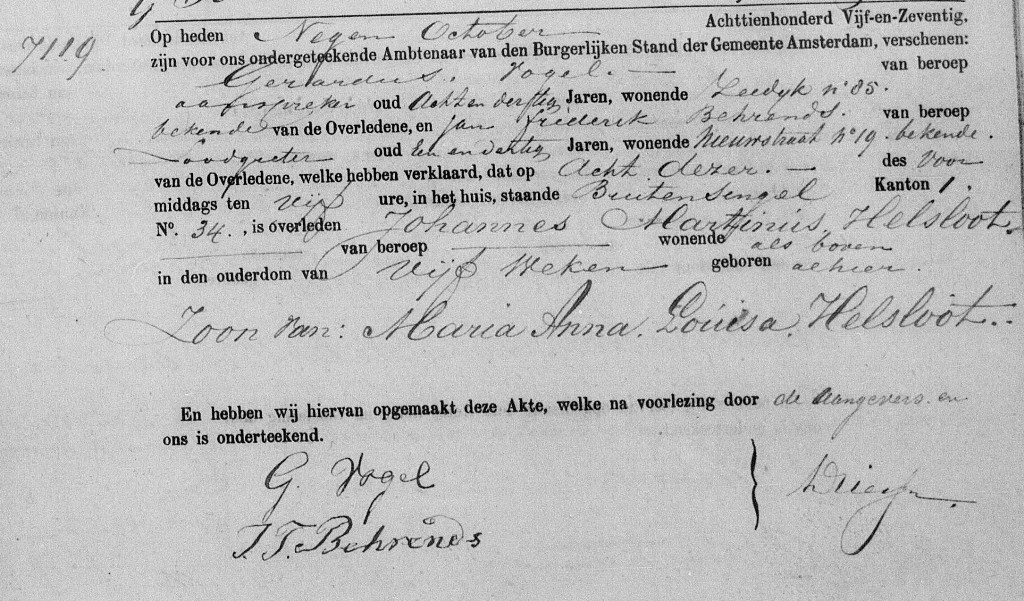 Op heden Negen October Achttienhonderd Vijf-en-Zeventig,
7119
zijn voor ons ondergeteekende Ambtenaar van den Burgerlijken Stand der Gemeente Amsterdam, verschenen:
Gerardus. Vogel. — van beroep
aanspreker oud Acht en dertig Jaren, wonende Zeedyk no 85.
bekende van de Overledene, en Jan Frederik Behrends. van beroep
Loodgieter oud Een en dertig Jaren, wonende Nieuwstraat no 19. bekende.
van de Overledene, welke hebben verklaard, dat op Acht dezer. — des Voor
middags ten Vijf ure, in het huis, staande Buitensingel Kanton 1.
No. 34., is overleden Johannes Martinus Helsloot.
van beroep wonende als boven
in den ouderdom van Vijf Weken geboren alhier.
Zoon van: Maria Anna. Louisa. Helsloot..
En hebben wij hiervan opgemaakt deze Akte, welke na voorlezing door de Aangevers. en
ons is onderteekend.
G. Vogel
J. F. Behrends